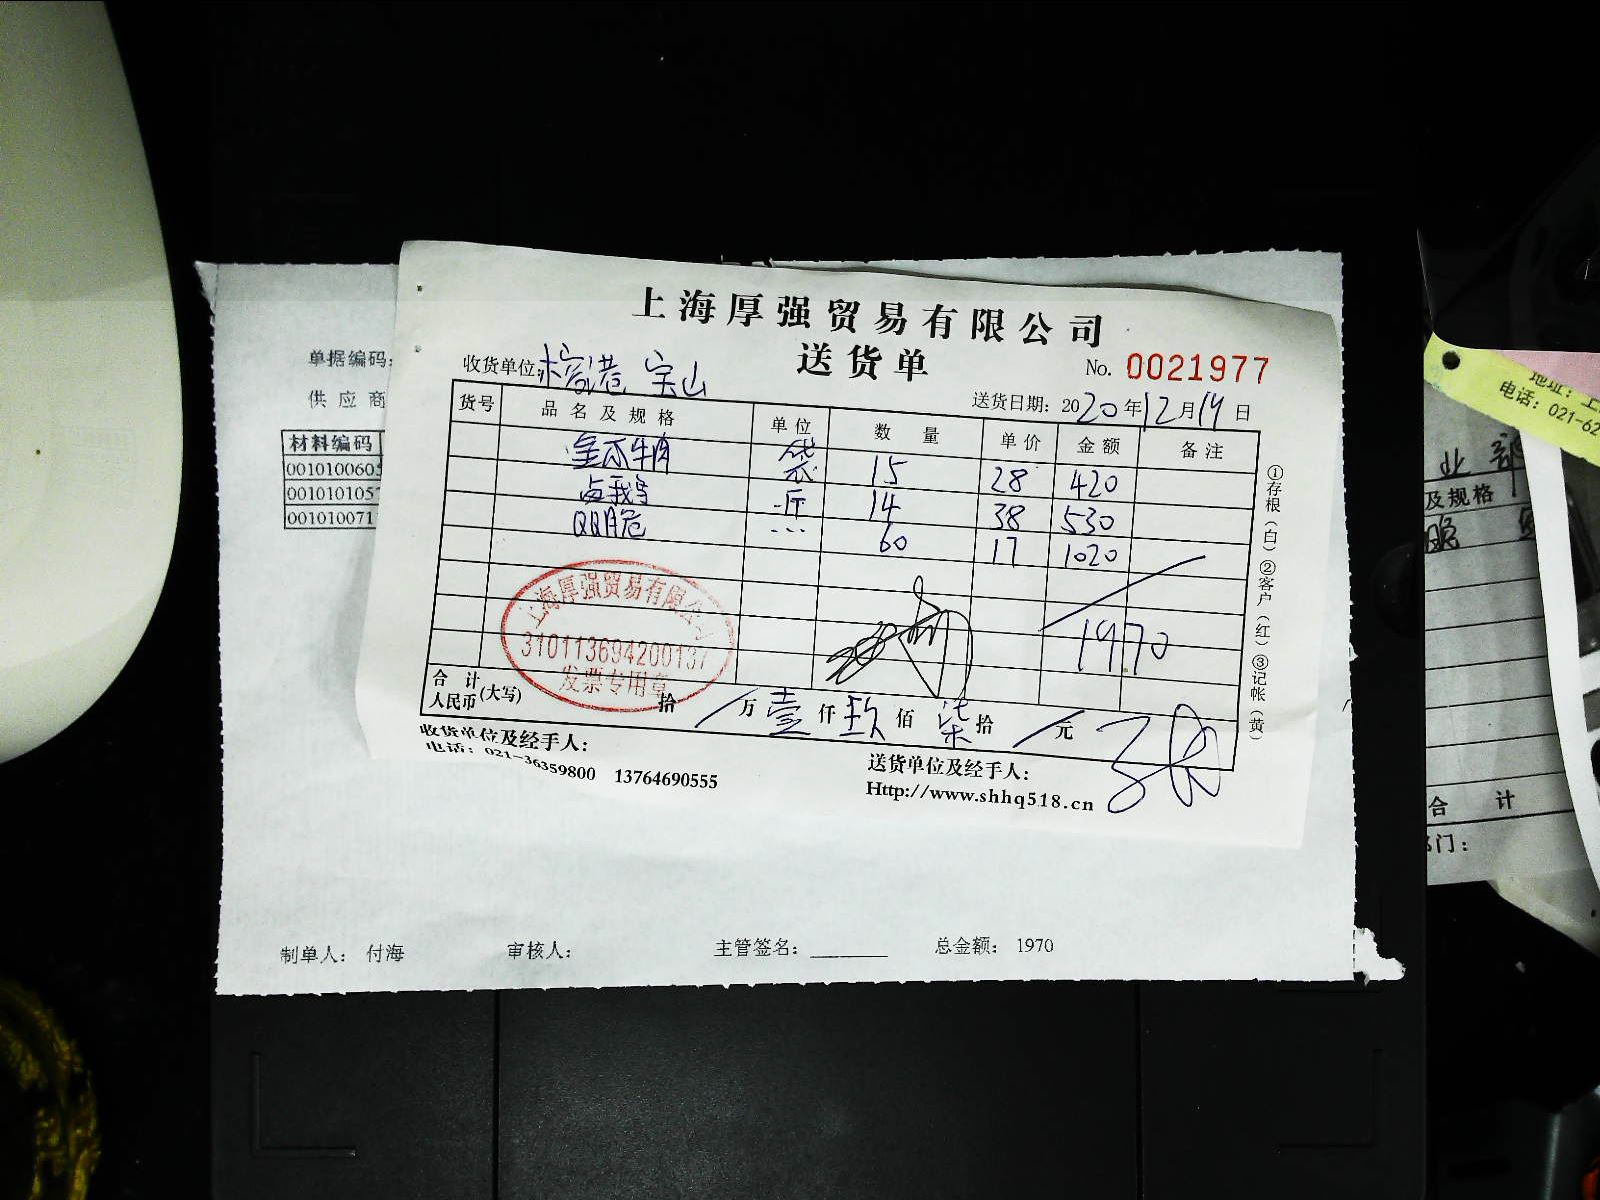 上海厚强贸易有限公司
送货单
No. 0021977
收货单位: 港 宝山
送货日期: 2020年12月19日
货号 品名及规格 单位 数量 单价 金额 备注
牛肉 袋 15 28 420
卤鹅 斤 14 38 530
QQ脆 ... 60 17 1020
1970
上海厚强贸易有限公司
310113694200137
发票专用章
合计
人民币(大写) 拾 / 万 壹 仟 玖 佰 柒 拾 / 元
收货单位及经手人:
电话: 021-36359800 13764690555
送货单位及经手人:
Http://www.shhq518.cn
①存根(白)②客户(红)③记帐(黄)
单据编码:
供应商
材料编码
001010060
001010105
001010071
制单人: 付海 审核人: 主管签名: 总金额: 1970
电话: 021-62
业部
及规格
合计
部门: